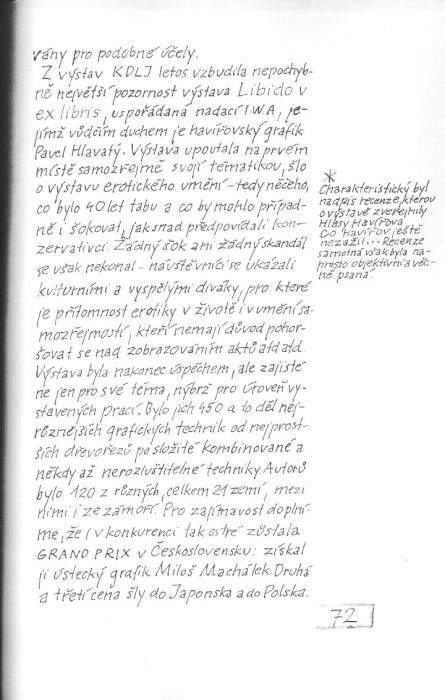 vány pro podobné účely.
Z výstav KDLJ letos vzbudila nepochyb-
ně největší pozornost výstava Libido v
ex libris, uspořádaná nadací I.W.A, je-
jímž vůdčím duchem je havířovský grafik
Pavel Hlavatý. Výstava upoutala na prvém
místě samozřejmě svojí tématikou, šlo
o výstavu erotického umění – tedy něčeho,
co bylo 40 let tabu a co by mohlo případ-
ně i šokovat, jak snad předpovídali kon-
zervativci. Žádný šok ani žádný skandál
se však nekonal – návštěvníci se ukázali
kulturními a vyspělými diváky, pro které
je přítomnost erotiky v životě i v umění sa-
mozřejmostí, kteří nemají důvod pohor-
šovat se nad zobrazováním aktů atd atd.
Výstava byla nakonec úspěchem, ale zajisté
ne jen pro své téma, nýbrž pro úroveň vy-
stavených prací. Bylo jich 450 a to děl nej-
různějších grafických technik od nejprost-
ších dřevorezů po složité kombinované a
někdy až nerozluštitelné techniky. Autorů
bylo 120 z různých, celkem 21 zemí, mezi
nimi i ze zámoří. Pro zajímavost doplní-
me, že i v konkurenci tak ostré zůstala
GRAND PRIX v Československu: získal
ji ústecký grafik Miloš Machálek. Druhá
a třetí cena šly do Japonska a do Polska.
*
Charakteristický byl
nadpis recenze, kterou
o výstavě zveřejnily
Hlasy Havířova
Co Havířov ještě
nezažil... Recenze
samotná však byla na-
prosto objektivní a věc-
ně psaná.
72